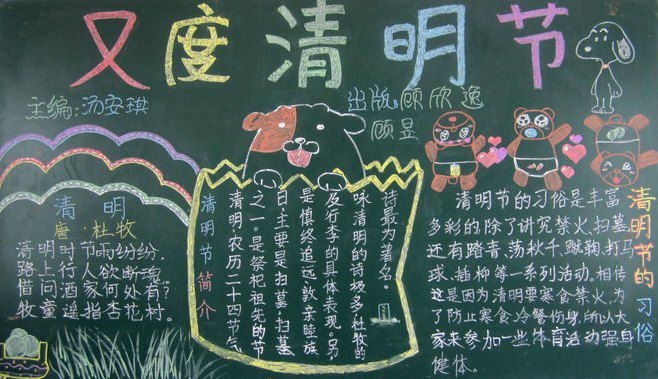 又度清明节
主编:汤安琪
出版:顾欣逸
顾昱
清明
唐·杜牧
清明时节雨纷纷,
路上行人欲断魂。
借问酒家何处有?
牧童遥指杏花村。
清明节简介
清明,农历二十四节气
之一。是祭祀祖先的节
日主要是扫墓,扫墓
是慎终追远、敦亲睦族
及行孝的具体表现。另
咏清明的诗极多杜牧的
诗最为著名。
清明节的习俗
清明节的习俗是丰富
多彩的,除了讲究禁火、扫墓,
还有踏青、荡秋千、蹴鞠、打马
球、插柳等一系列活动。相传
这是因为清明要寒食禁火,为
了防止寒食冷餐伤身,所以大
家来参加一些体育活动强自
健体。